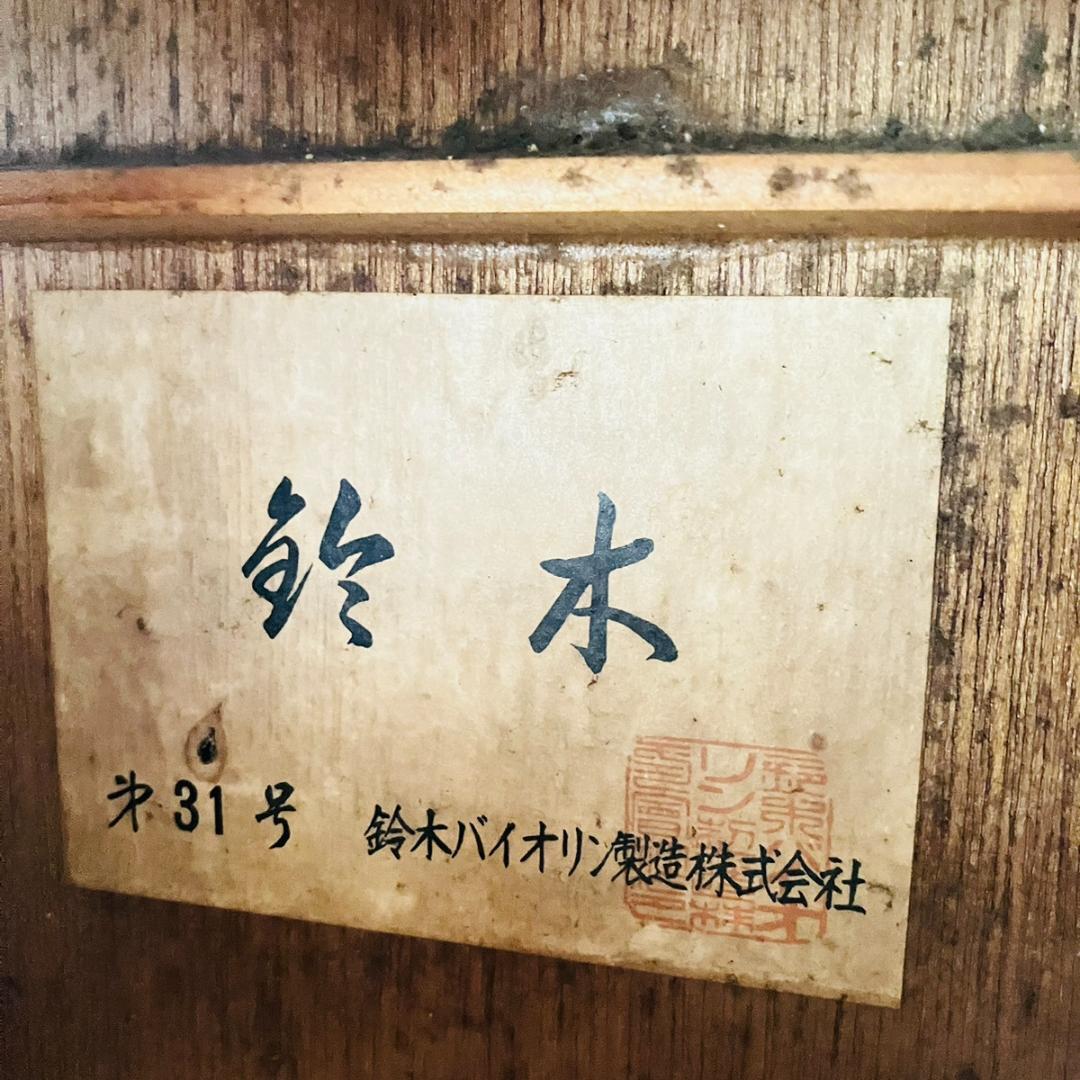 鈴木
㐧31号
鈴木バイオリン製造株式会社